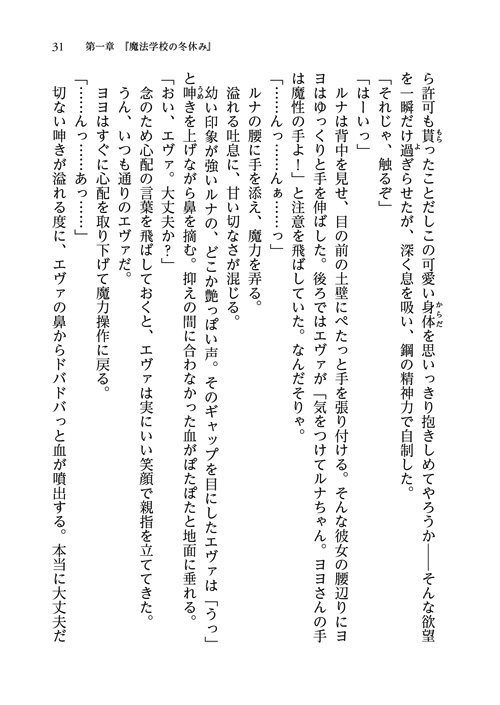 31　第一章　『魔法学校の冬休み』
ら許可も貰ったことだしこの可愛い身体を思いっきり抱きしめてやろうか――そんな欲望
を一瞬だけ過ぎらせたが、深く息を吸い、鋼の精神力で自制した。
「それじゃ、触るぞ」
「はーいっ」
ルナは背中を見せ、目の前の土壁にぺたっと手を張り付ける。そんな彼女の腰辺りにヨ
ヨはゆっくりと手を伸ばした。後ろではエヴァが「気をつけてルナちゃん。ヨヨさんの手
は魔性の手よ！」と注意を飛ばしていた。なんだそりゃ。
「……んっ……んぁ……っ」
ルナの腰に手を添え、魔力を弄る。
溢れる吐息に、甘い切なさが混じる。
幼い印象が強いルナの、どこか艶っぽい声。そのギャップを目にしたエヴァは「うっ」
と呻きを上げながら鼻を摘む。抑えの間に合わなかった血がぽたぽたと地面に垂れる。
「おい、エヴァ。大丈夫か？」
念のため心配の言葉を飛ばしておくと、エヴァは実にいい笑顔で親指を立ててきた。
うん、いつも通りのエヴァだ。
ヨヨはすぐに心配を取り下げて魔力操作に戻る。
「……んっ……あっ……」
切ない呻きが溢れる度に、エヴァの鼻からドバドバっと血が噴出する。本当に大丈夫だ